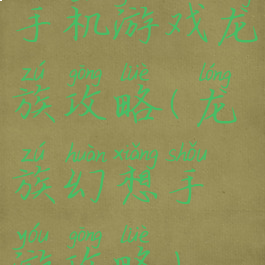 手机游戏龙
zú gōng lüè lóng
族攻略(龙
zú huàn xiǎng shǒu
族幻想手
yóu gōng lüè
游攻略)